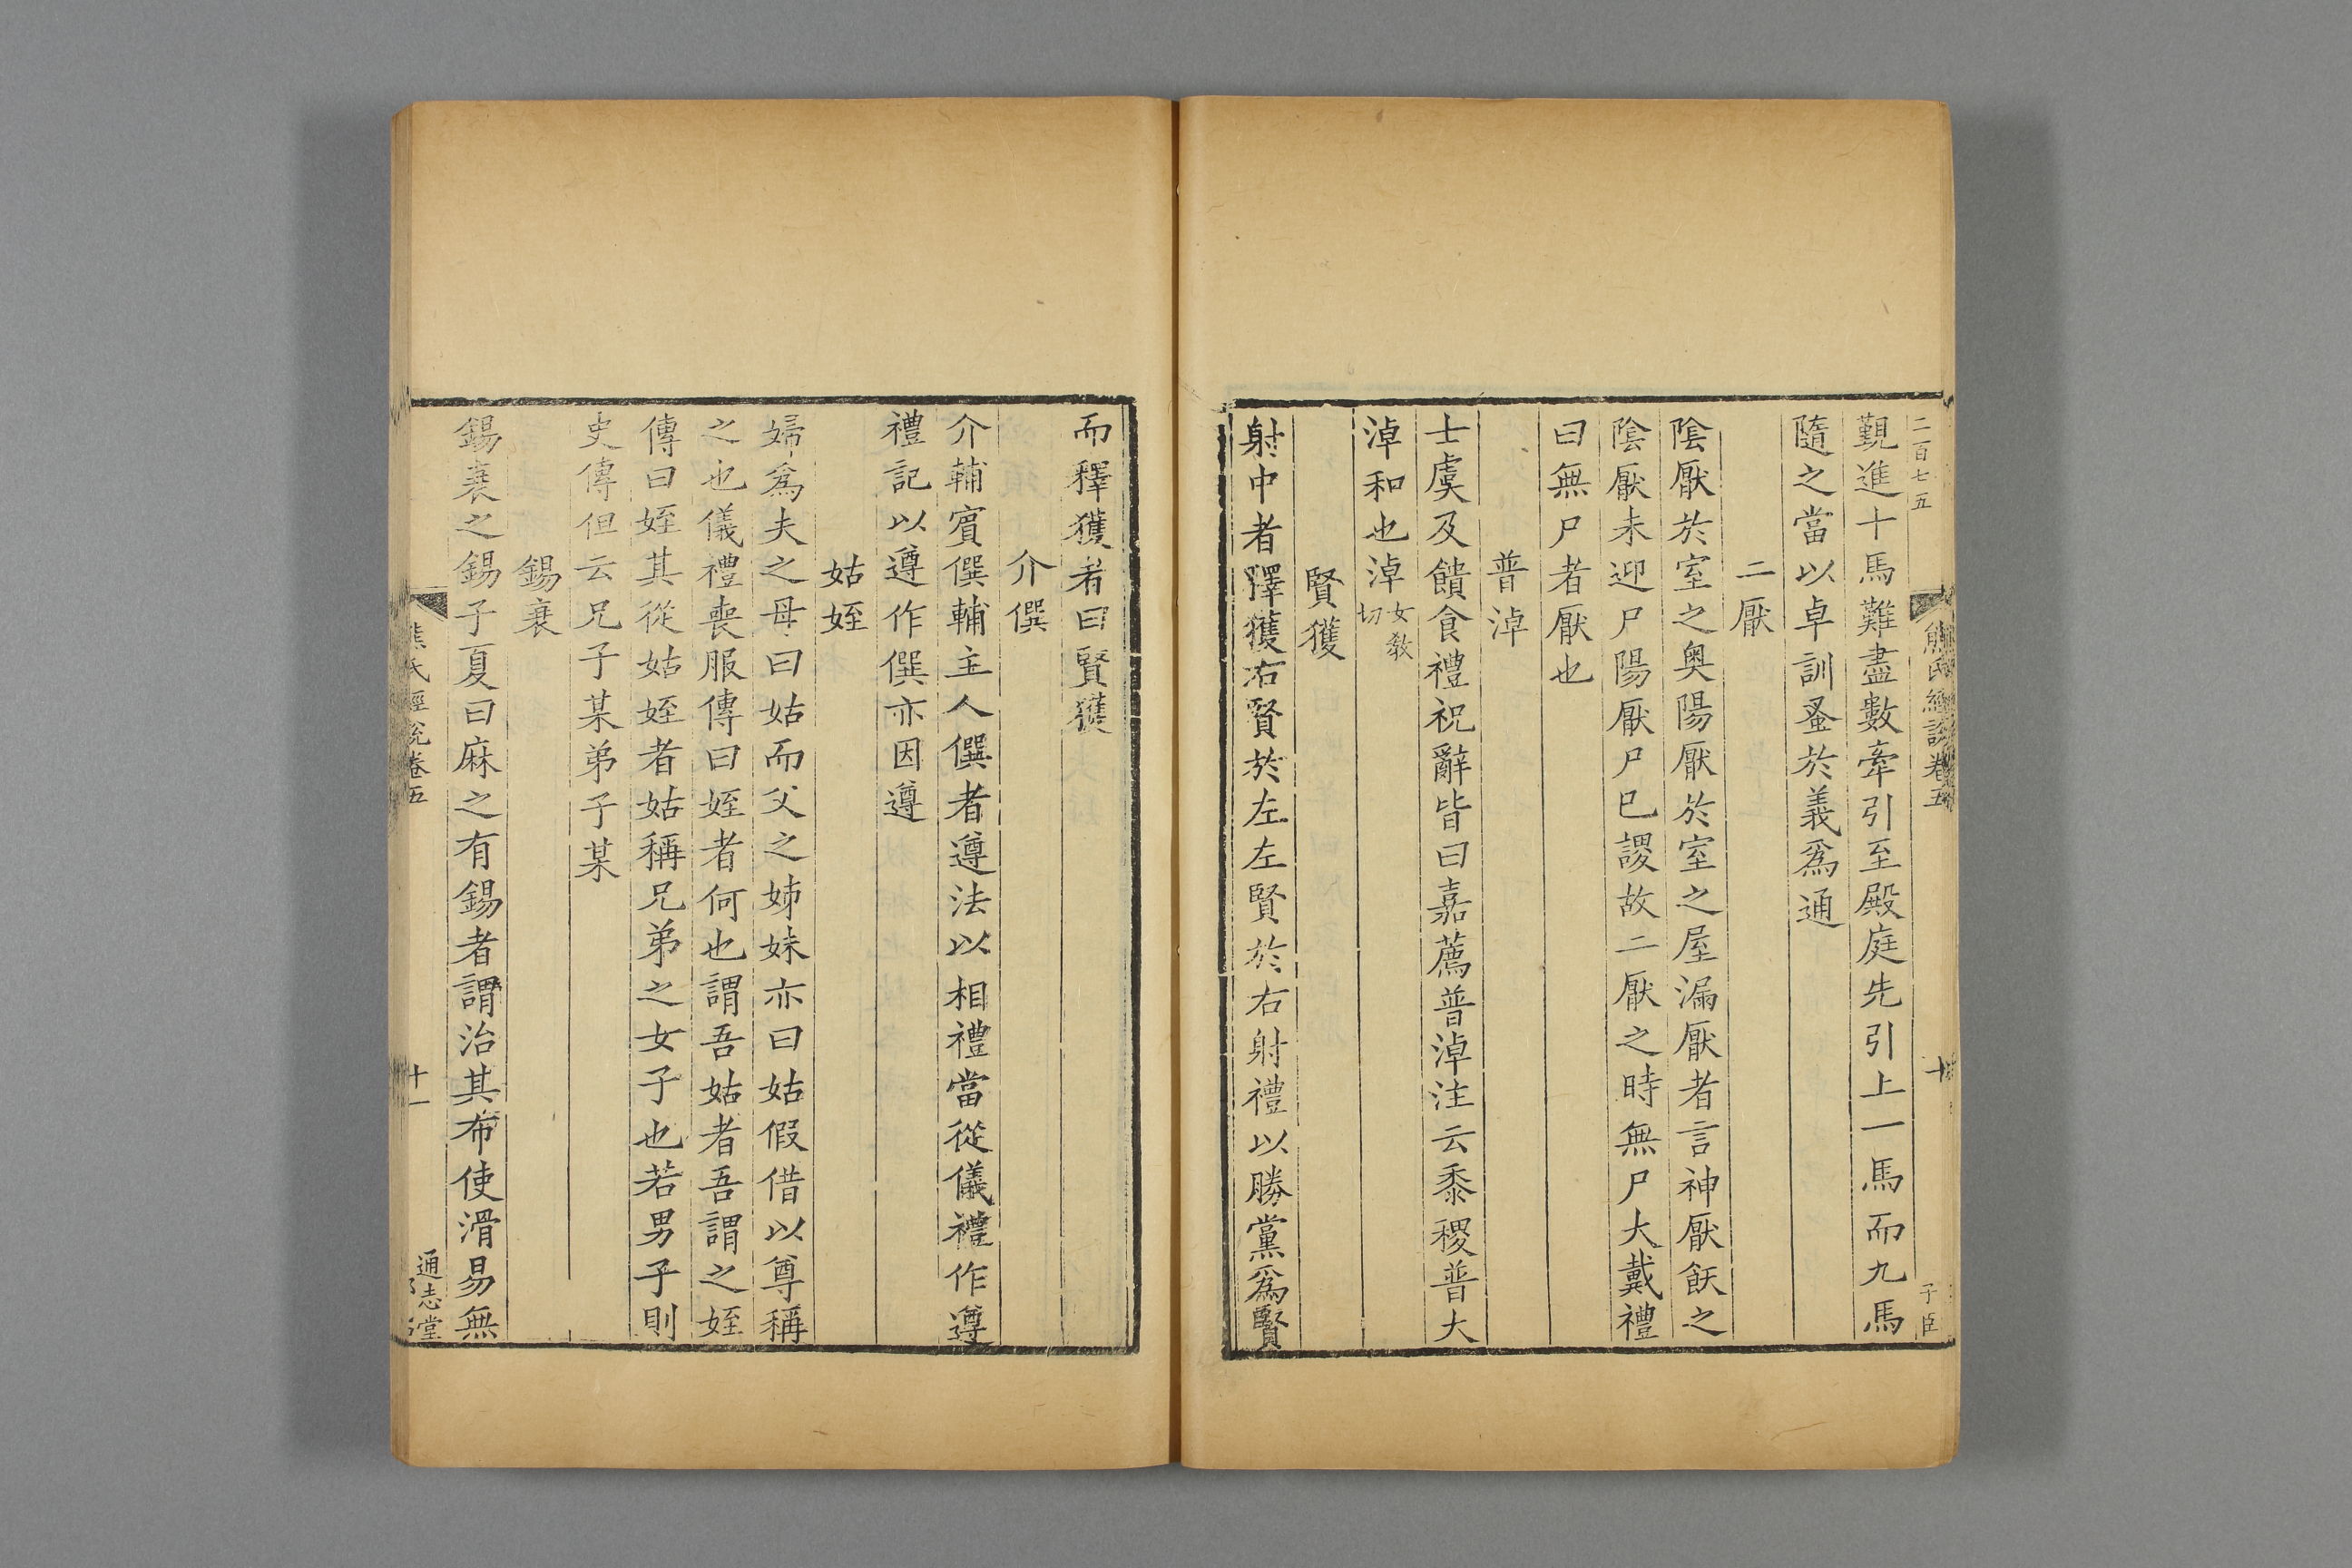 二百七五
熊氏經說卷五
十
子臣
覲進十馬難盡數牽引至殿庭先引上一馬而九馬
隨之當以卓訓蚤於義爲通
二厭
陰厭於室之奥陽厭於室之屋漏厭者言神厭飫之
陰厭未迎尸陽厭尸巳謖故二厭之時無尸大戴禮
曰無尸者厭也
普淖
士虞及饋食禮祝辭皆曰嘉薦普淖注云黍稷普大
淖和也淖女敎切
賢獲
射中者釋獲右賢於左左賢於右射禮以勝黨爲賢
而釋獲者曰賢獲
介僎
介輔賔僎輔主人僎者遵法以相禮當從儀禮作遵
禮記以遵作僎亦因遵
姑姪
婦爲夫之母曰姑而父之姊妹亦曰姑假借以尊稱
之也儀禮喪服傳曰姪者何也謂吾姑者吾謂之姪
傳曰姪其從姑姪者姑稱兄弟之女子也若男子則
史傳但云兄子某弟子某
錫衰
錫衰之錫子夏曰麻之有錫者謂治其布使滑易無
熊氏經說卷五
十一
通志堂